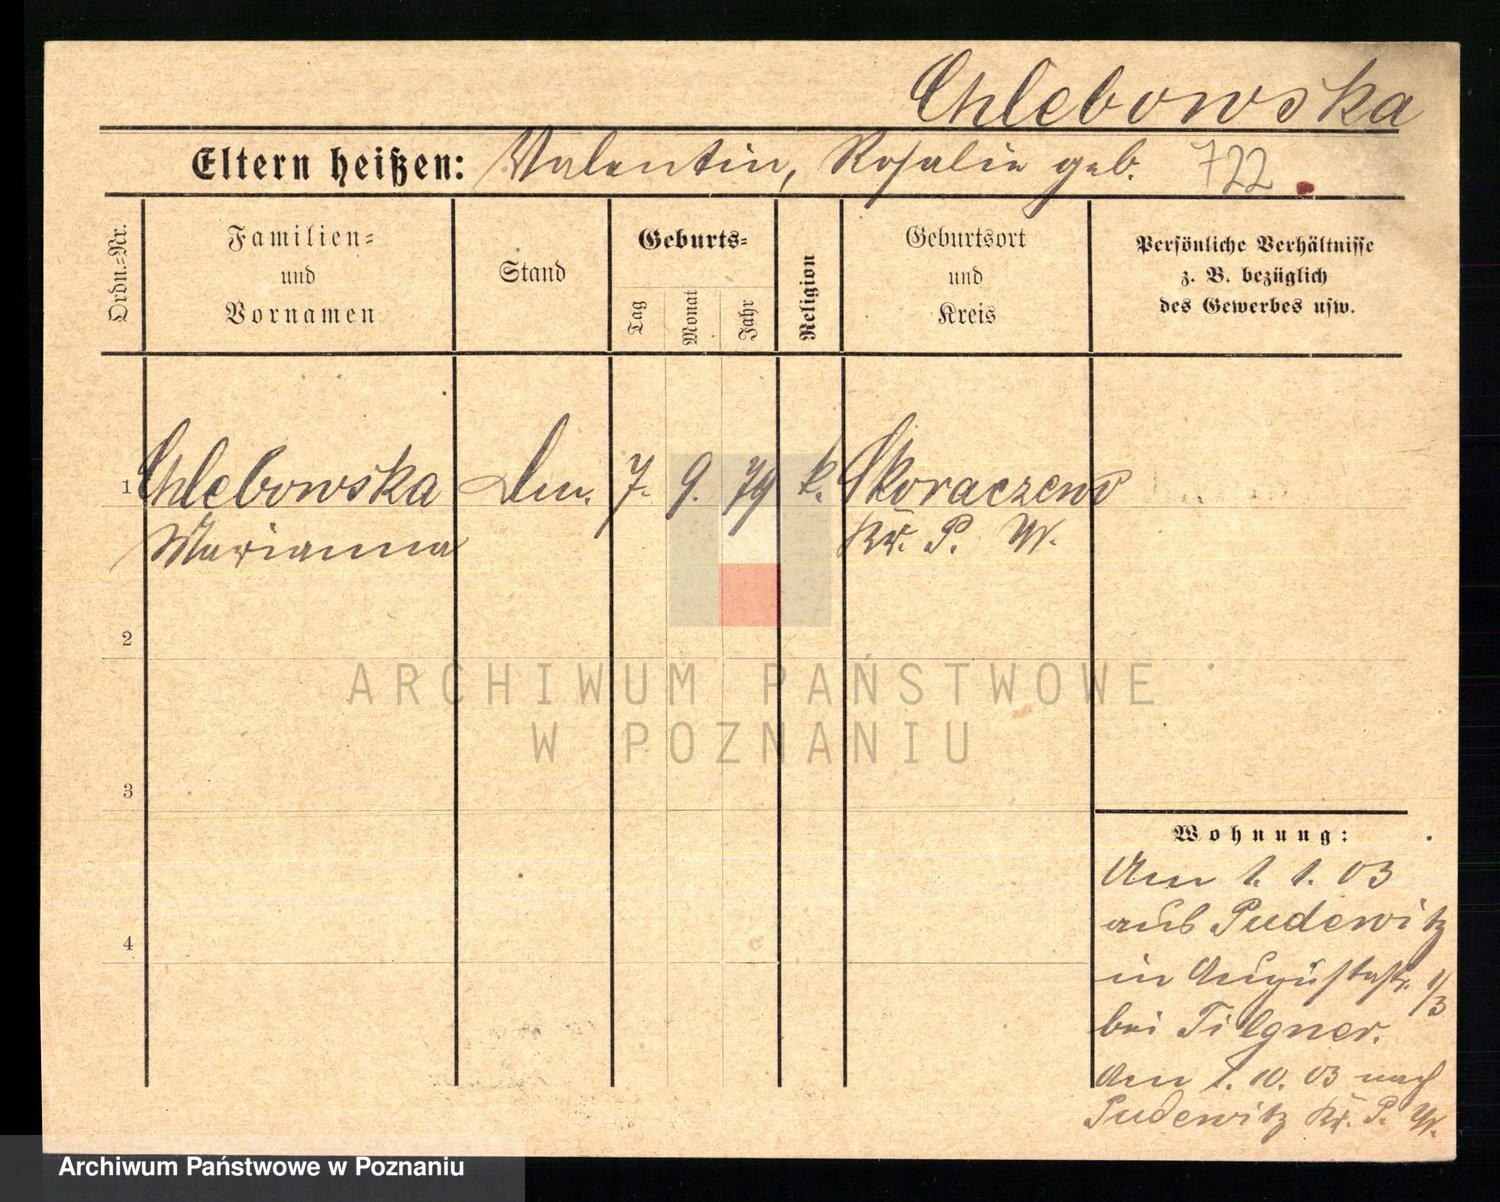 Chlebowska
Eltern heißen: Valentin, Rosalie geb. 722
Ordn.=Nr.
Familien=
und
Vornamen
Stand
Geburts=
Tag
Monat
Jahr
Religion
Geburtsort
und
Kreis
Persönliche Verhältnisse
z. B. bezüglich
des Gewerbes usw.
1 Chlebowska 7. 9. 79 k. Skoraczewo
Marianna Kr. P. W.
2
3
4
Wohnung:
Am 1. 1. 03
aus Pudewitz
in Augustastr. 1/3
bei Tilgner.
Am 1. 10. 03 nach
Pudewitz Kr. P. W.
ARCHIWUM PAŃSTWOWE
W POZNANIU
Archiwum Państwowe w Poznaniu